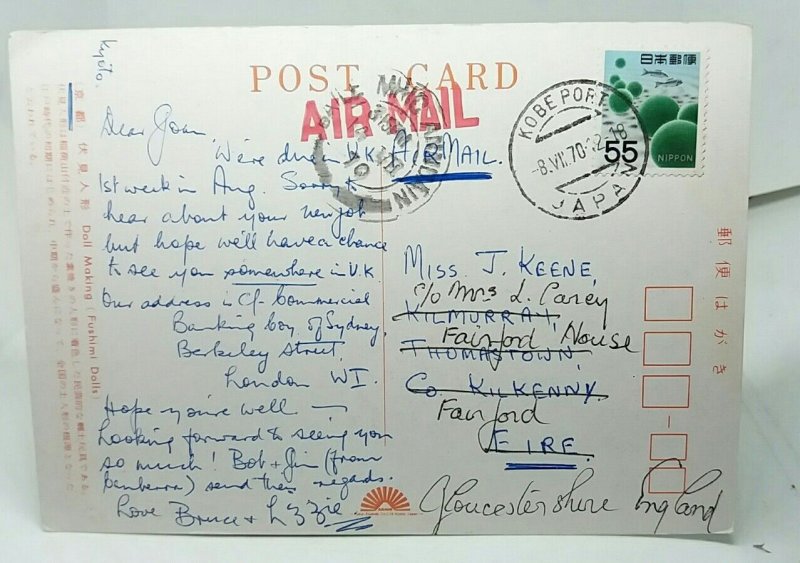 Kyoto.
POST CARD
AIR MAIL
日本郵便
55
NIPPON
KOBE PORT
-8.VII.70.12-18
JAPAN
Dear Joan,
We're due in U.K.
1st week in Aug. Sorry to
hear about your new job
but hope we'll have a chance
to see you somewhere in U.K.
Our address is C/- Commercial
Banking Coy. of Sydney,
Berkeley Street,
London W1.
Hope you're well —
Looking forward to seeing you
so much! Bob + Jim (from
Canberra) send their regards.
Love Bruce + Lizzie
AIR MAIL.
MISS J. KEENE,
c/o Mrs L. Carey
KILMURRAY,
Fairford House
THOMASTOWN,
CO KILKENNY.
Fairford
EIRE.
Gloucestershire England
郵便はがき
京都 伏見人形 Doll Making (Fushimi Dolls)